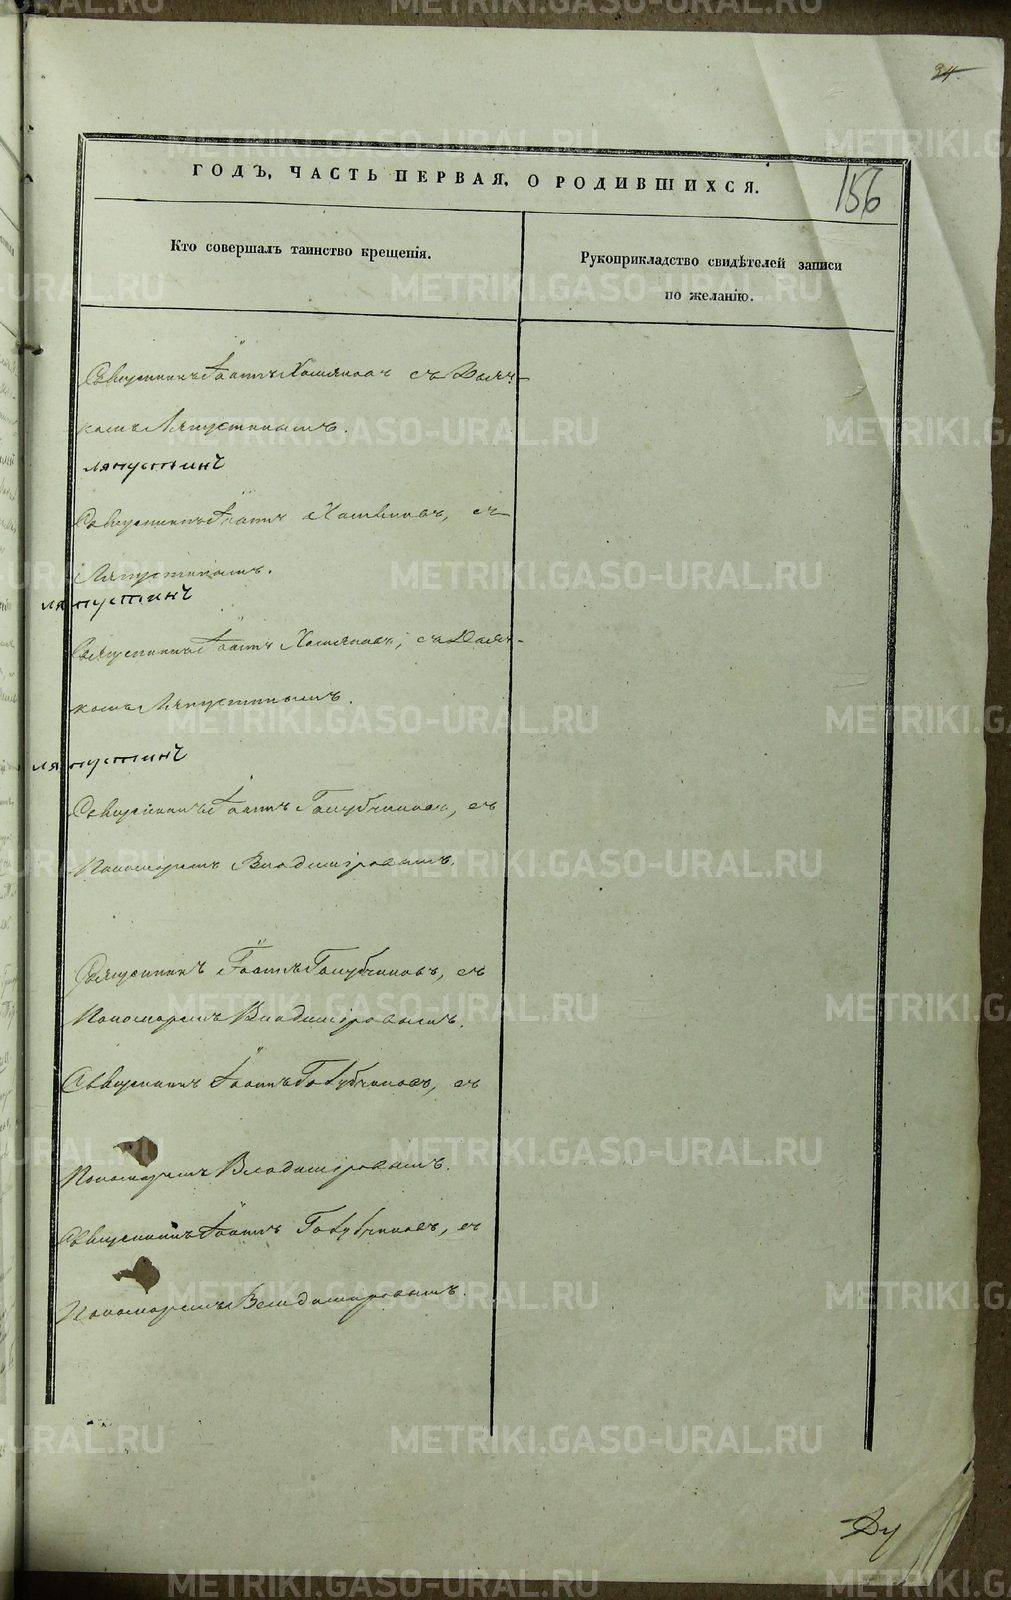 34
ГОДЪ, ЧАСТЬ ПЕРВАЯ, О РОДИВШИХСЯ.
156
Кто совершалъ таинство крещенія.
Рукоприкладство свидѣтелей записи
по желанію.
Священникъ Іоаннъ Хомяковъ съ Дьяч-
комъ Ляпустинымъ.
ляпустинъ
Священникъ Іоаннъ Хомяковъ, съ
Ляпустинымъ.
ляпустинъ
Священникъ Іоаннъ Хомяковъ, съ Дьяч-
комъ Ляпустинымъ.
ляпустинъ
Священникъ Іоаннъ Голубчиковъ, съ
Пономаремъ Владиміровымъ.
Священникъ Іоаннъ Голубчиковъ, съ
Пономаремъ Владиміровымъ.
Священникъ Іоаннъ Голубчиковъ, съ
Пономаремъ Владиміровымъ.
Священникъ Іоаннъ Голубчиковъ, съ
Пономаремъ Владиміровымъ.
METRIKI.GASO-URAL.RU